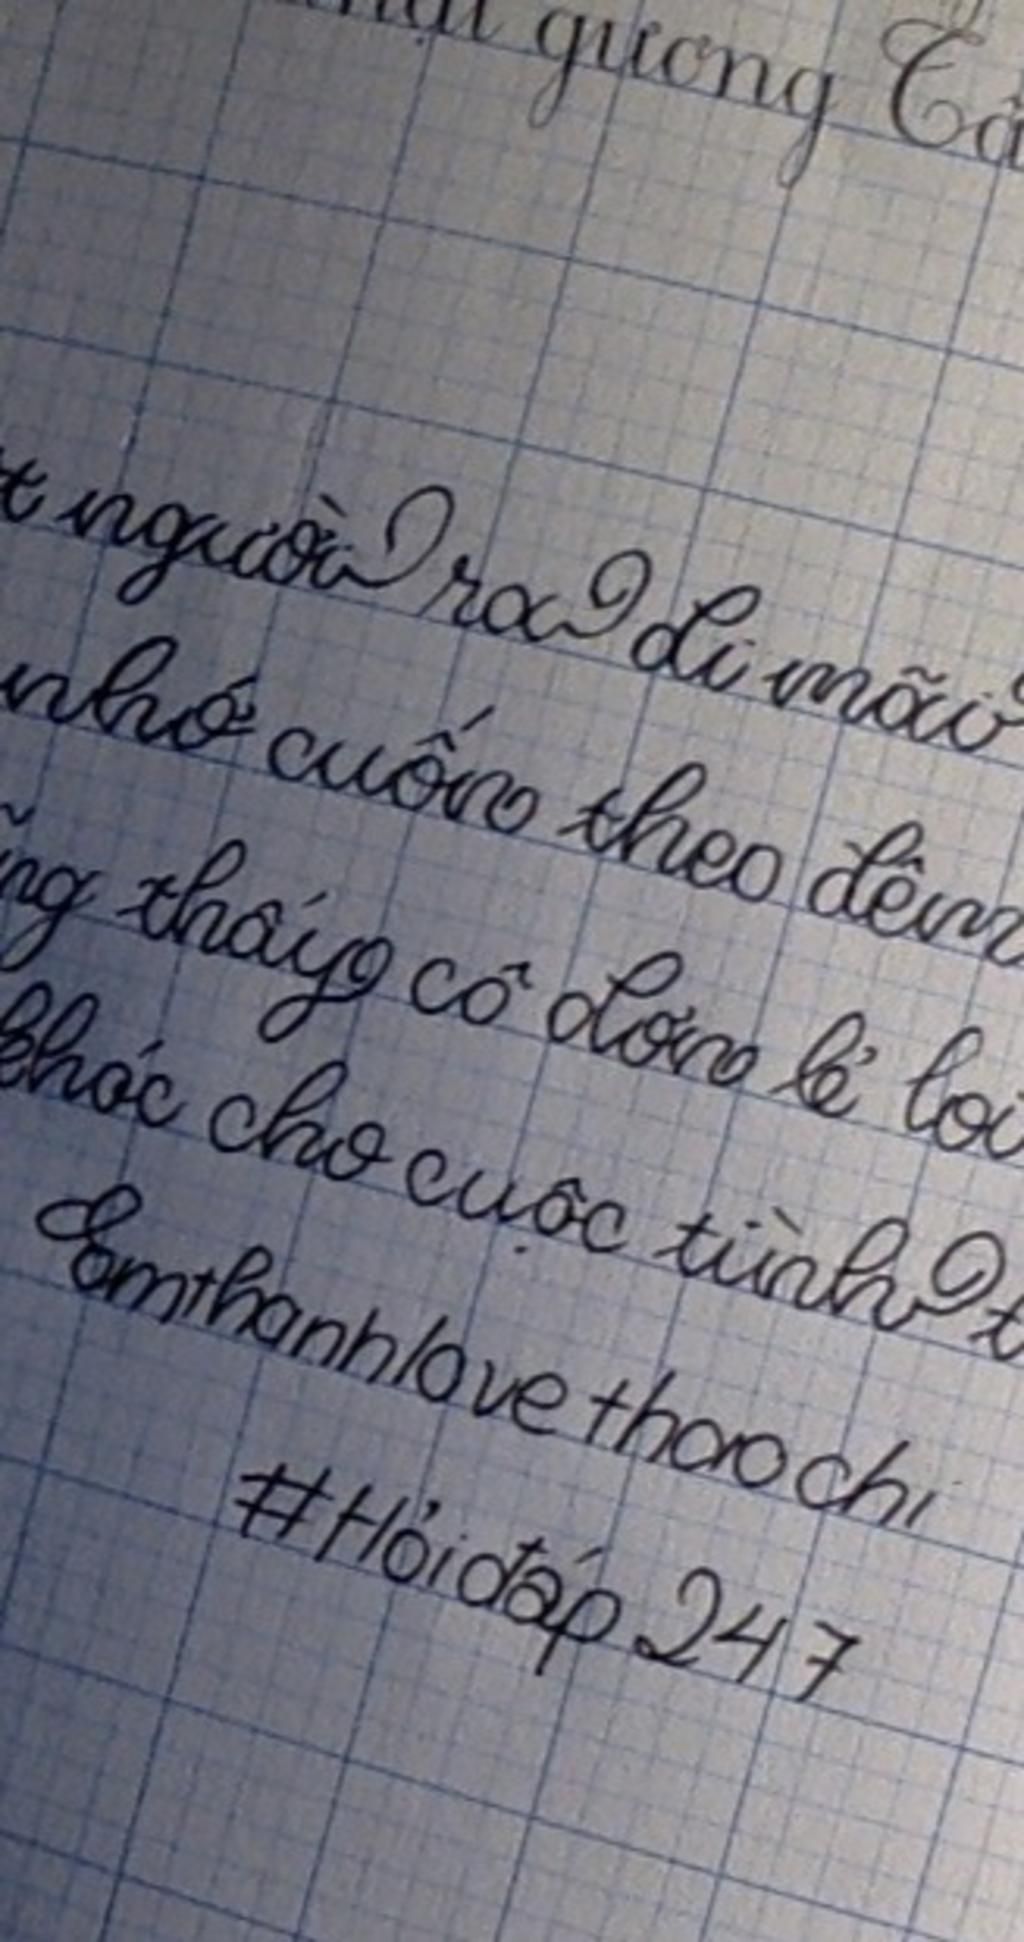 gương
người ra đi mãi
nhớ cuốn theo đêm
thấy cô đơn lẻ loi
khóc cho cuộc tình
Emthanhlove thaochi
#Hỏiđáp 247